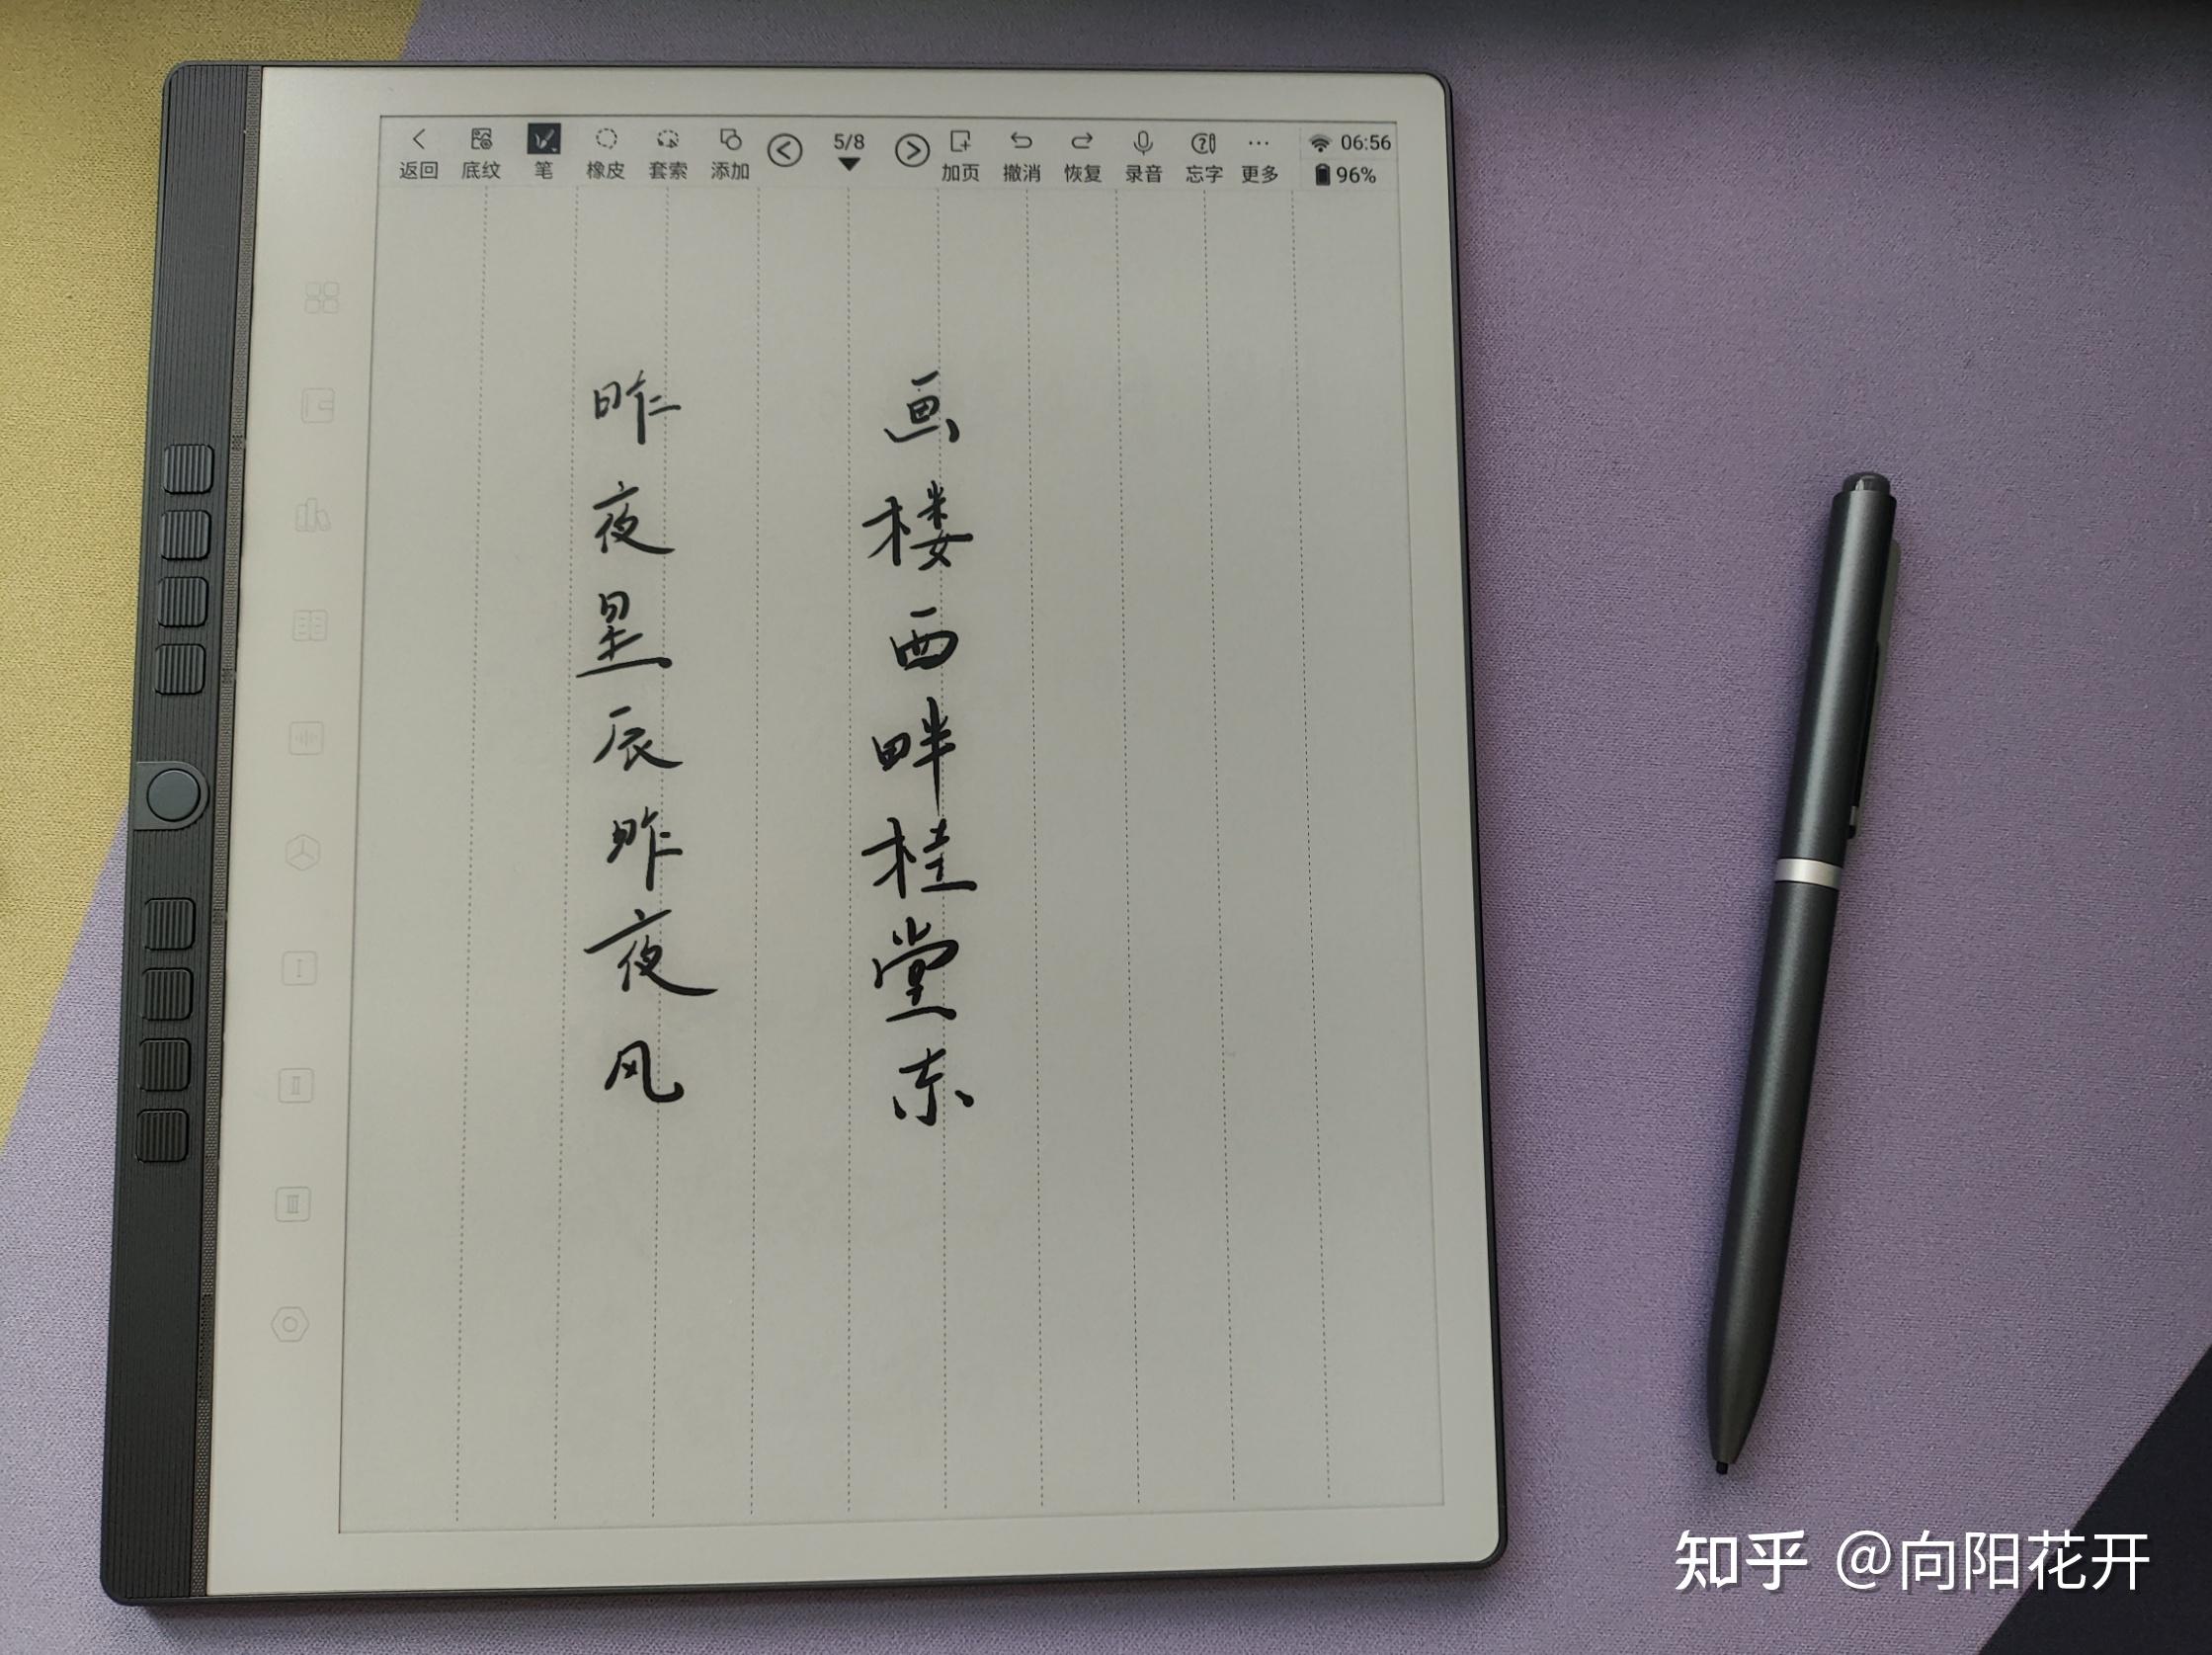 返回 底纹 笔 橡皮 套索 添加 5/8 加页 撤消 恢复 录音 忘字 更多 06:56
96%
昨夜星辰昨夜风
画楼西畔桂堂东
知乎 @向阳花开